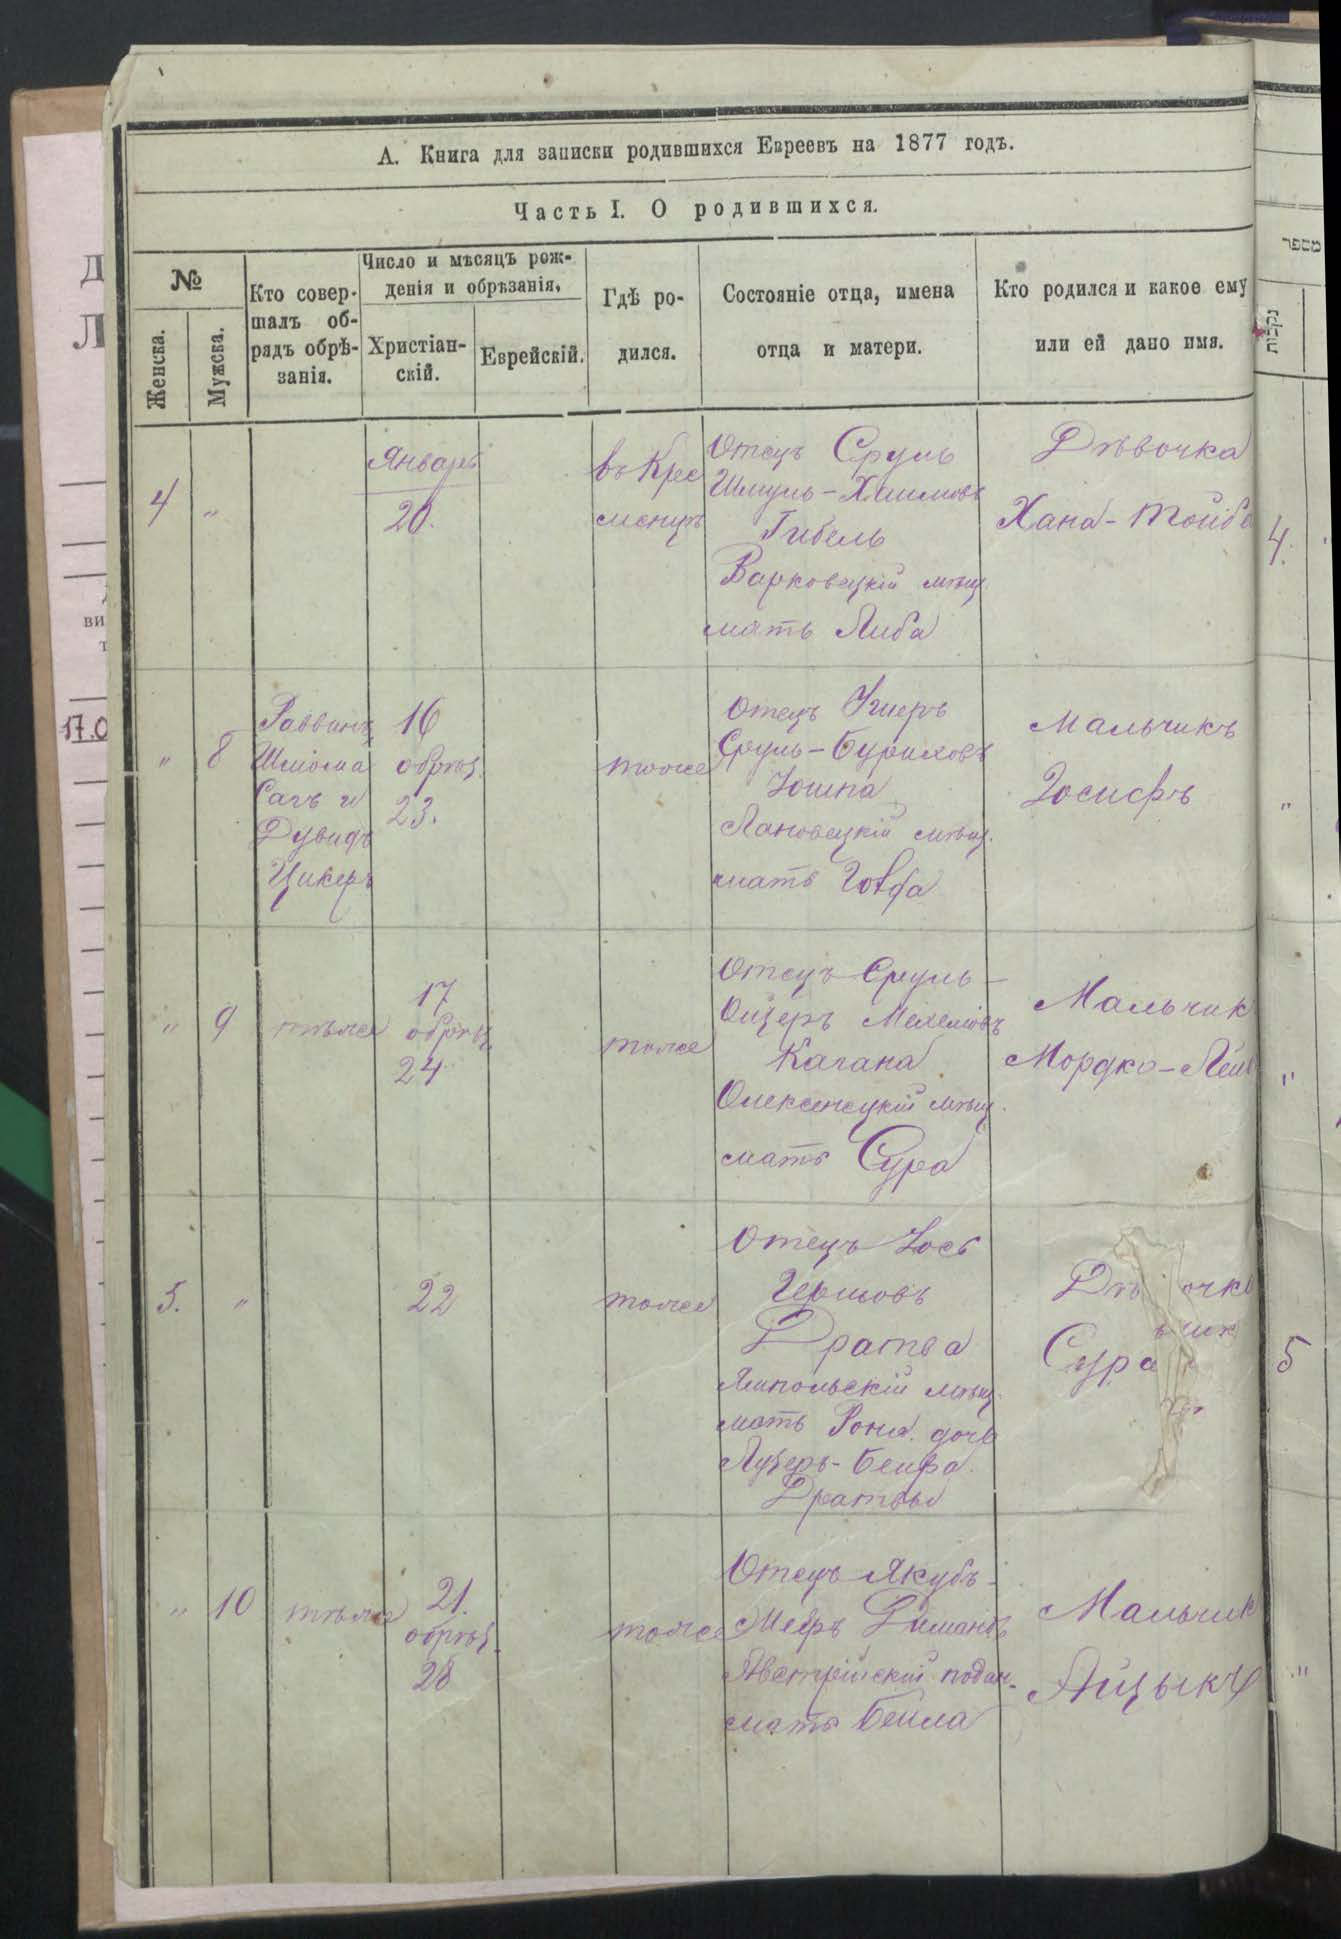 А. Книга для записки родившихся Евреевъ на 1877 годъ.
Часть I. О родившихся.
№
Женска.
Мужска.
Кто совер-
шалъ об-
рядъ обрѣ-
занія.
Число и мѣсяцъ рож-
денія и обрѣзанія.
Христіан-
скій.
Еврейскій.
Гдѣ ро-
дился.
Состояніе отца, имена
отца и матери.
Кто родился и какое ему
или ей дано имя.
4
"
Январь
20.
въ Кре
менцѣ
Отецъ Сруль
Шмуль-Хаимовъ
Гибель
Варковецкій мѣщ.
мать Либа
Дѣвочка
Хана-Тойба
"
8
Раввинъ
Шліома
Сагъ и
Дувидъ
Цикеръ
16
обрѣз.
23.
тоже
Отецъ Ушеръ
Сруль-Буриховъ
Йошпа
Лановецкій мѣщ.
мать
Мальчикъ
Іосифъ
"
9
тѣже
17
обрѣз.
24
тоже
Отецъ Сруль-
Ойзеръ Мехелювъ
Кагана
Олексенецкій мѣщ.
мать Сура
Мальчик
Мордко-Лейб
5.
"
22
тоже
Отецъ Іось
Гершовъ
Дратва
Ямпольскій мѣщ.
мать Роня дочь
Лузеръ-Бенра
Дратвы
Дѣ очка
Сура
"
10
тѣже
21.
обрѣз.
28
тоже
Отецъ Якубъ-
Мееръ
Австрійскій подан.
мать Бейла
Мальчик
Айцыкъ
מספר
נקבות
4.
"
"
5
"
17.0